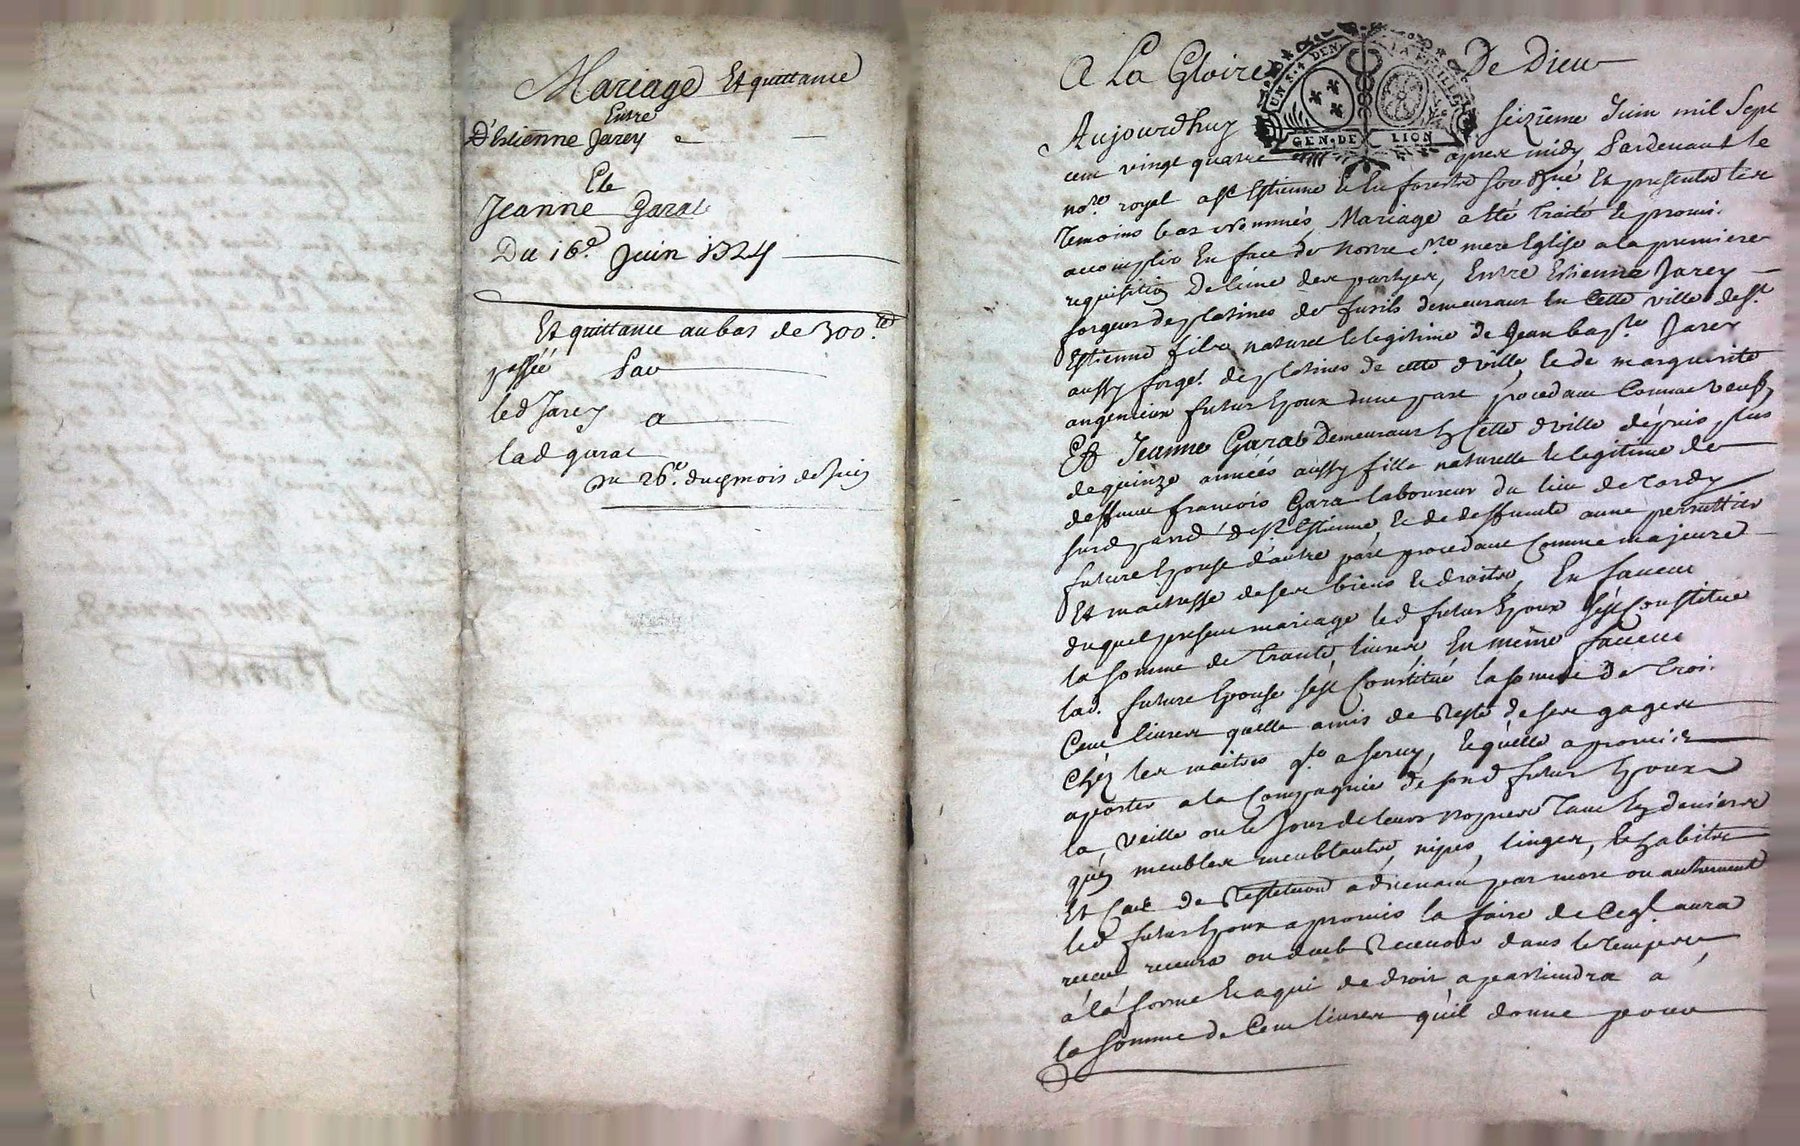 Mariage Et quittance
Entre
D'Estienne Jarey
Et
Jeanne Garat
Du 16e. Juin 1724
Et quittance au bas de 300 lt.
passée Par
led Jarey a
lad garat
Du 26e. dud mois de Juin
A La Gloire De Dieu
UN S. 4 DEN. LA FEUILLE
GEN. DE LION
Aujourdhuy seizieme Juin mil Sept
cent vingt quatre apres midy Pardevant le
nore. royal a St Estienne et en forests soussigné Et presents les
temoins bas nommés, Mariage a eté traité et promis
accomplir En face de notre ste mere Eglise a la premiere
requisition De lune des partyes, Entre Estienne Jarey
forgeur de platines de fusils demeurant En Cette ville de St
Estienne fils naturel et legitime de Jean bapte Jarey
aussy forgr. de platines de cette ville, et de marguerite
angenieux futur Epoux dune part procedant Comme veuf,
Et Jeanne Garat demeurant En Cette ville depuis plus
de quinze années aussy fille naturelle et legitime de
deffunt francois Gara laboureur du lieu de tardy
surd parr. de St Estienne, et de deffunte anne
future Epouse dautre part procedant Comme majeure
Et maitresse de ses biens et droits, En faveur
duquel present mariage led futur Epoux sest Constitue
la somme de trante livres En même faveur
lad. future Epouse sest Constitué la somme de trois
Cent livres quelle a mis de Reste de ses gages
Chez les maitres qle a servy, Et quelle a promis
aporter a la Compagnie de sond futur Epoux
la veille ou le Jour de leurs nopces tant En deniers
quen meubles meublants, nipes, linges, et habits
Et Cas de Restitution advenant par mort ou autrement
led futur Epoux a promis la faire de Ce ql. aura
receu recevra ou deub Recevoir dans le temps
á lá forme Et a qui de droit apartiendra a
la somme de Cent livres quil donne pour